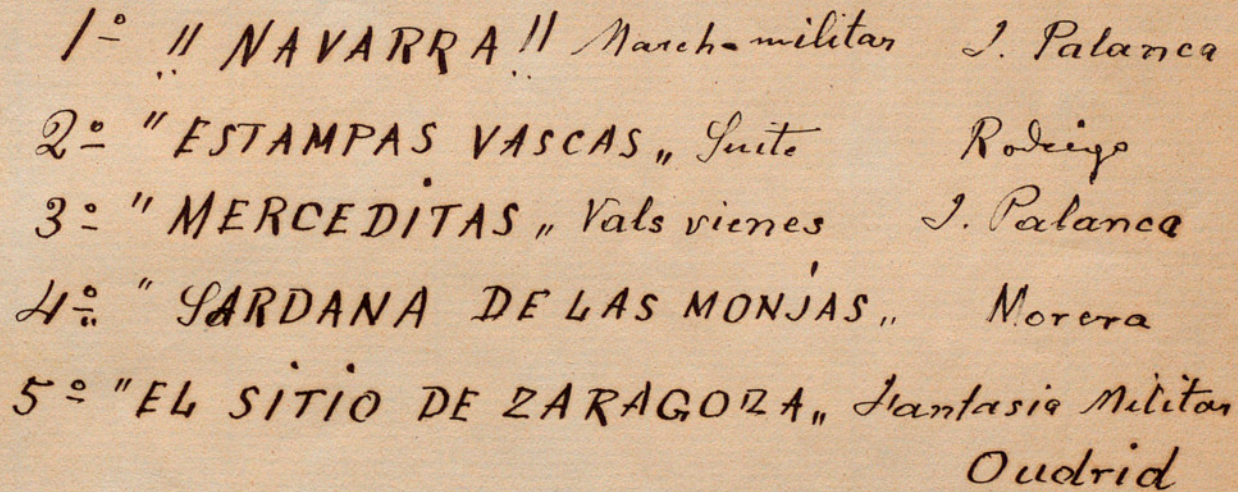 1º "NAVARRA" Marcha militar J. Palanca
2º "ESTAMPAS VASCAS" Suite Rodrigo
3º "MERCEDITAS" Vals vienes J. Palanca
4º "SARDANA DE LAS MONJAS" Morera
5º "EL SITIO DE ZARAGOZA" Fantasia Militar
Oudrid